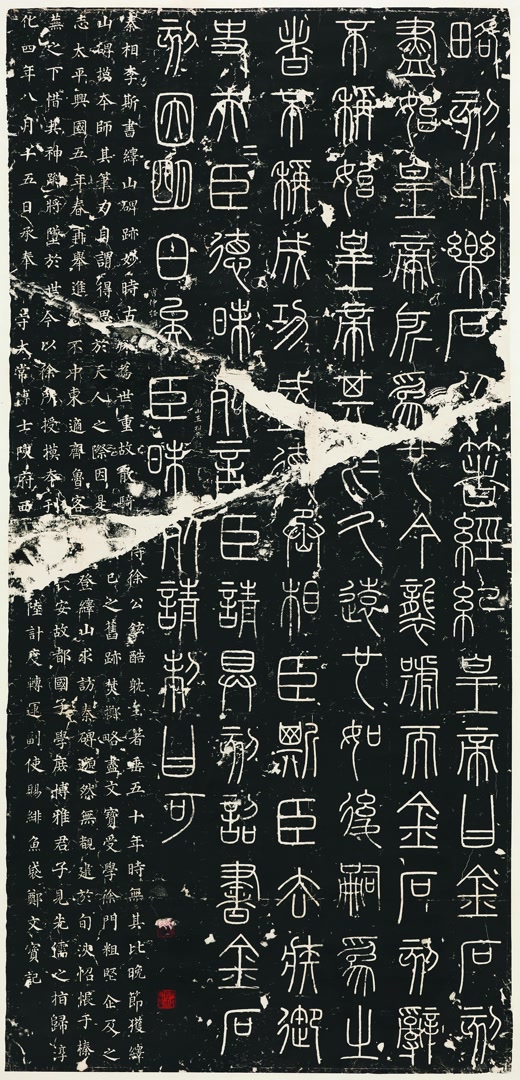 略刻此樂石以著經紀皇帝曰金石刻
盡始皇帝所爲也今襲號而金石刻辭
不稱始皇帝其於久遠也如後嗣爲之
者不稱成功盛德丞相臣斯臣去疾御
史夫臣德昧死言臣請具刻詔書金石
刻因明白矣臣昧死請制曰可
秦相李斯書繹山碑跡妙時古殊爲世重故散騎侍徐公鉉酷躭玉著垂五十年時無其比晚節獲繹
山碑摸本師其筆力自謂得思於天人之際因是己之舊跡焚擲略盡文寶受學徐門粗堅企及之
志太平興國五年春再舉進不中東適齊魯客登繹山求訪秦碑邈然無覩逮於旬浹怊悵于榛
蕪之下惜其神蹤將墜於世今以徐所授摸本刊長安故都國子學庶博雅君子見先儒之指歸淳
化四年八月十五日承奉守太常博士陝府西陸計度轉運副使賜緋魚袋鄭文寶記